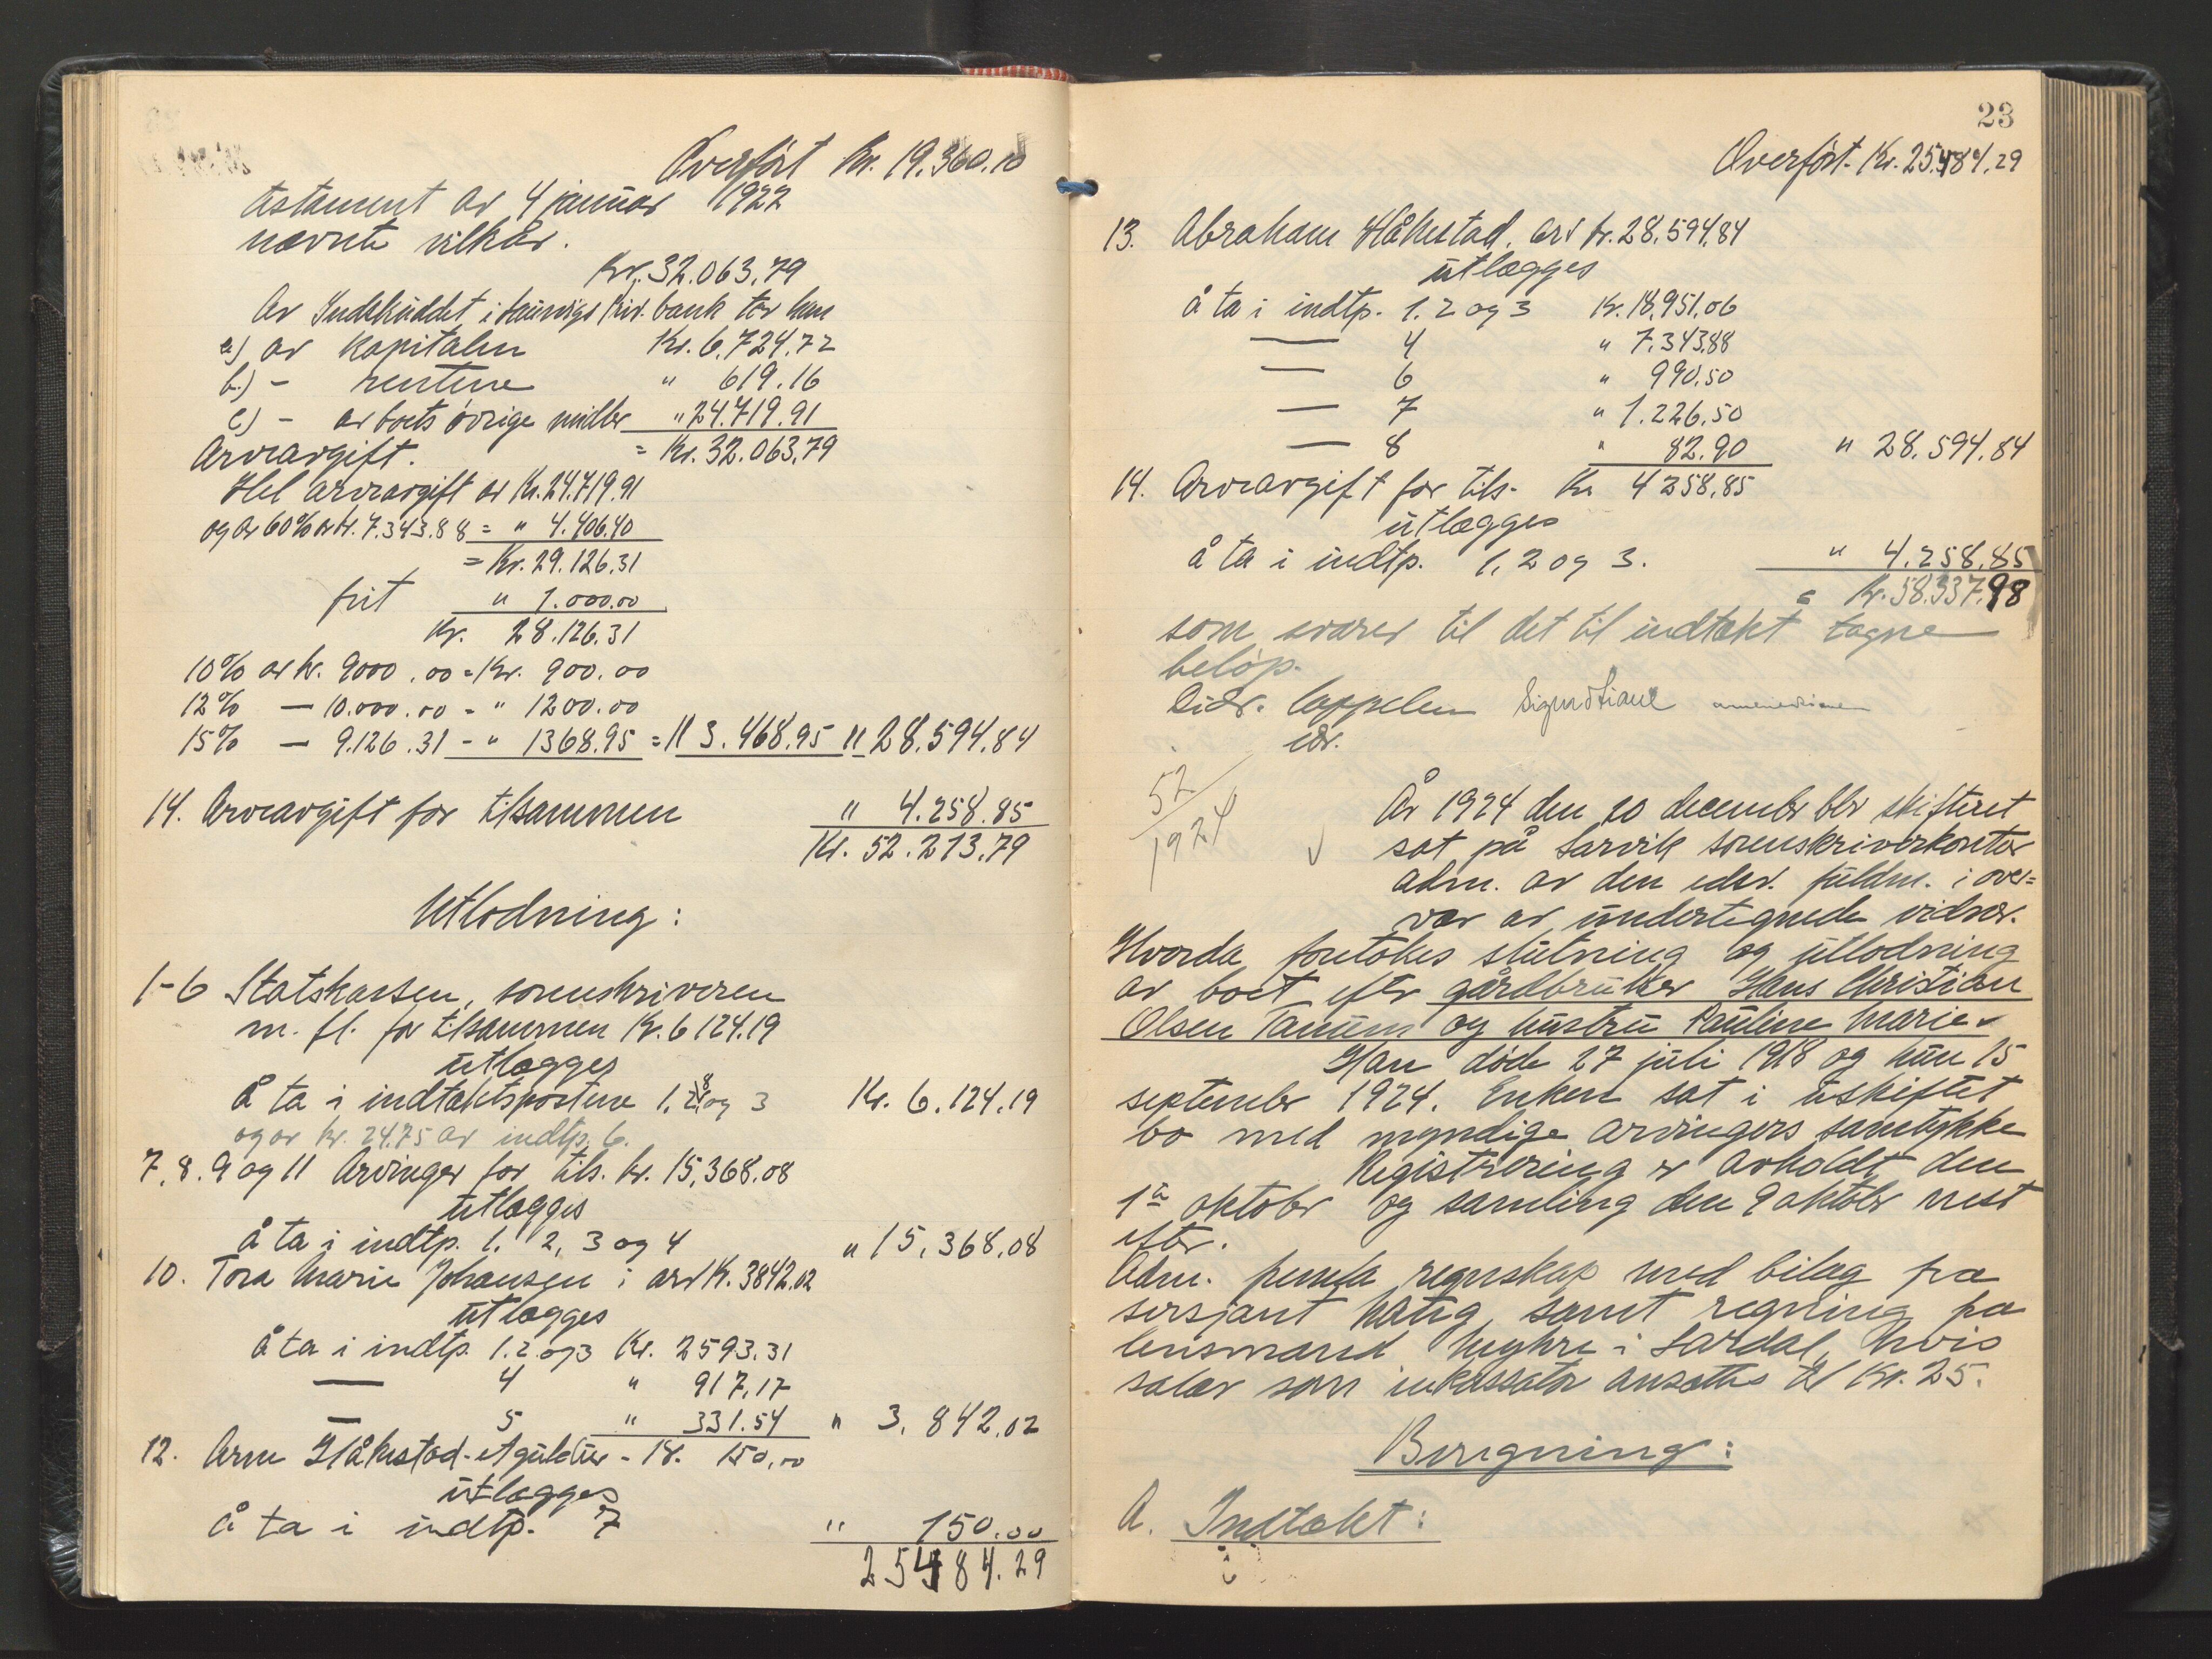 Overført Kr. 19.360.10
testament av 4 januar 1922
nævnte vilkår.
Kr. 32.063,79
Av Indskuddet i Laurvigs Priv. bank tar han
a.) av kapitalen Kr. 6.724.72
b.) - rentene " 619.16
c) - av boets øvrige midler " 24.719.91
Arveavgift. = Kr. 32.063,79
Hel arveavgift av Kr. 24.719.91
og av 60% av kr. 7.343.88 = " 4.406.40
= Kr. 29.126.31
frit " 1.000.00
Kr. 28.126.31
10% av kr. 9000.00 = Kr. 900.00
12% — 10.000.00 - " 1200.00
15% — 9.126.31 - " 1368.95 = " 3.468.95 " 28.594.84
14. Arveavgift for tilsammen " 4.258.85
Kr. 52.213.79
Utlodning:
1-6 Statskassen, sorenskriveren
m. fl. for tilsammen Kr. 6124.19
utlægges
å ta i indtaktspostene 1. 2 og 3 Kr. 6.124.19
og av kr. 24.75 av indtp. 6.
7. 8. 9 og 11 Arvinger for tils. kr. 15,368.08
utlægges
å ta i indtp. 1. 2, 3 og 4 " 15,368,08
10. Tora Marie Johansen i arv Kr. 3842.02
utlægges
å ta i indtp. 1.2.og 3 Kr. 2593.31
— 4 " 917,17
— 5 " 331.54 " 3.842.02
12. Arne Håkestad - et guldur - 18. 150,00
utlægges
å ta i indtp. 7 " 150.00
25484.29
23
Overført. Kr. 25.484.29
13. Abraham Håkestad. arv kr. 28.594,84
utlægges
å ta i indtp. 1. 2 og 3 Kr. 18,951.06
— 4 " 7.343,88
— 6 " 990.50
— 7 " 1.226,50
— 8 " 82.90 " 28.594,84
14. Arveavgift for tils. Kr 4258,85
utlægges
å ta i indtp. 1, 2 og 3. " 4.258.85
= Kr. 58.337.98
som svarer til det til indtækt tagne
beløp.
Didr. Cappelen
edr.
52
1924
År 1924 den 10 december blev skifteret
sat på Larvik sorenskriverkontor
adm. av den edsv. fuldm. i over=
vær av undertegnede vidner.
Hvorda foretokes slutning og utlodning
av boet efter gårdbruker Hans Christian
Olsen Tanum og hustru Pauline Marie.
Han døde 27 juli 1918 og hun 15
september 1924. Enken sat i uskiftet
bo med myndige arvingers samtykke
Registrering er avholdt den
1ste oktober og samling den 9 oktober nest
efter.
Adm. fremla regnskap med bilag fra
sersjant Haug samt regning fra
lensmand Myhre i Lardal, hvis
salær som inkassator ansættes til Kr. 25.
Beregning:
A. Indtækt: